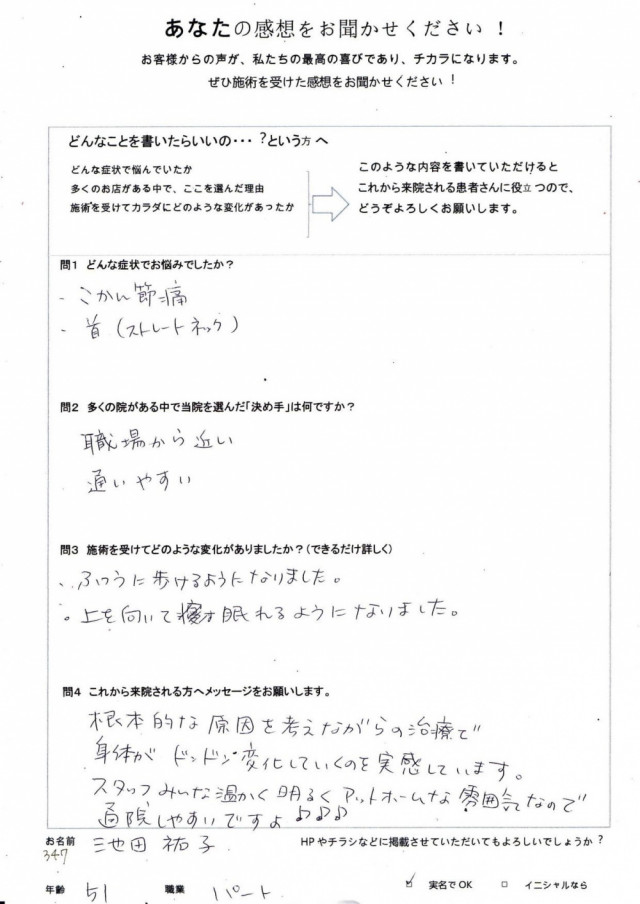 あなたの感想をお聞かせください！
お客様からの声が、私たちの最高の喜びであり、チカラになります。
ぜひ施術を受けた感想をお聞かせください！
どんなことを書いたらいいの・・・？という方へ
どんな症状で悩んでいたか
多くのお店がある中で、ここを選んだ理由
施術を受けてカラダにどのような変化があったか
このような内容を書いていただけると
これから来院される患者さんに役立つので、
どうぞよろしくお願いします。
問1 どんな症状でお悩みでしたか？
・こかん節痛
・首（ストレートネック）
問2 多くの院がある中で当院を選んだ「決め手」は何ですか？
職場から近い
通いやすい
問3 施術を受けてどのような変化がありましたか？（できるだけ詳しく）
・ふつうに歩けるようになりました。
・上を向いて眠れるようになりました。
問4 これから来院される方へメッセージをお願いします。
根本的な原因を考えながらの治療で
身体がドンドン変化していくのを実感しています。
スタッフみんな温かく明るくアットホームな雰囲気なので
通院しやすいですよ♪♪♪
お名前 池田 祐子
347
HPやチラシなどに掲載させていただいてもよろしいでしょうか？
年齢 51 職業 パート ☑ 実名でOK □ イニシャルなら